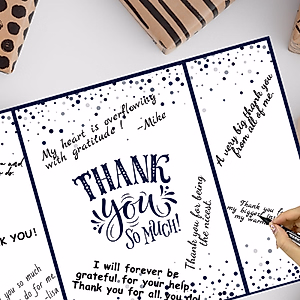 My heart is overflowing
with gratitude!
-Mike
THANK
you
SO MUCH!
I will forever be
grateful for your help.
Thank you for all you did
Thank you for being
the nicest.
A very big thank you
from all of me.
Thank you
my biggest
my
YOU!
you so much
do for me.